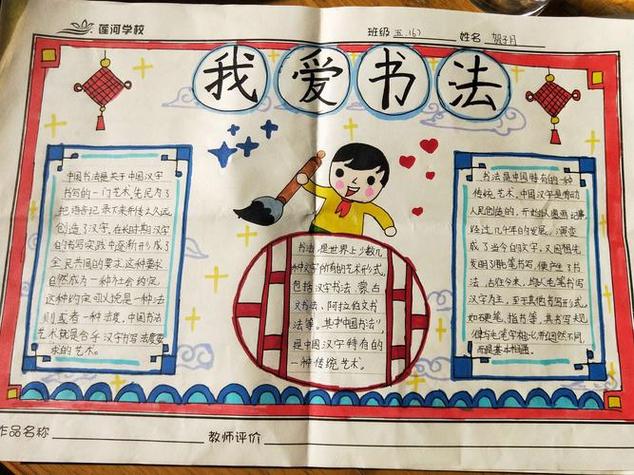 莲河学校
班级 五.(6) 姓名 贺子月
我爱书法
中国书法是关于中国汉字
书写的一门艺术,先民为了
把语言记录下来并传之久远,
创造了汉字,在长时期汉字
的书写实践中逐渐形成了
全民共同的要求,这种要求
自然成为一种社会约定,
这种约定可以说是一种法
则或者一种法度,中国书法
艺术就是合乎汉字书写法度要
求的艺术。
书法,是世界上少数几
种文字所有的艺术形式,
包括汉字书法、蒙古
文书法、阿拉伯文书
法等。其中“中国书法”,
是中国汉字特有的
一种传统艺术。
书法是中国特有的一种
传统艺术。中国汉字是劳动
人民创造的,开始以图画记事,
经过几千年的发展,演变
成了当今的文字,又因祖先
发明了用毛笔书写,便产生了书
法,古往今来,均以毛笔书写
汉字为主,至于其他书写形式,
如硬笔、指书等,其书写规
律与毛笔字
而是基本相通。
作品名称
教师评价